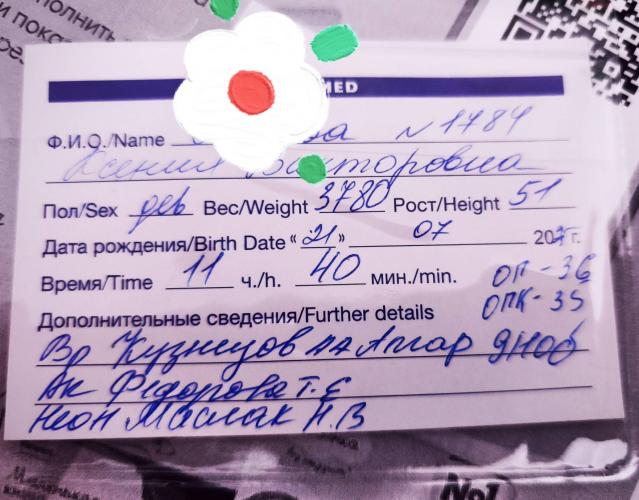 полнить
и пока
MED
Ф.И.О./Name ва N1784
Ксения Викторовна
Пол/Sex дев Вес/Weight 3780 Рост/Height 51
Дата рождения/Birth Date «21» 07 202 г.
Время/Time 11 ч./h. 40 мин./min. ОГ-36
Дополнительные сведения/Further details ОПК-35
Вр Кузнецов АА Апгар
Ак Федорова Т.Е
Неон Маслак Н.В
№1